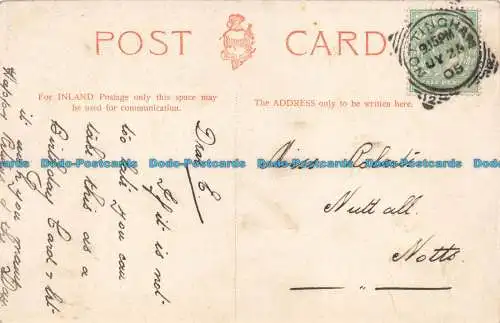 POST CARD.
For INLAND Postage only this space may
be used for communication.
The ADDRESS only to be written here.
NOTTINGHAM
9.15PM
JY 24
05
Dear E.
If it is not
too late you can
take this as a
Birthday Card & let
it wish you many
Happy Returns of the Day
Miss Roberts
Nuttall.
Notts.
Dodo-Postcards Dodo-Postcards Dodo-Postcards Dodo-Postcards Dodo-Postcards